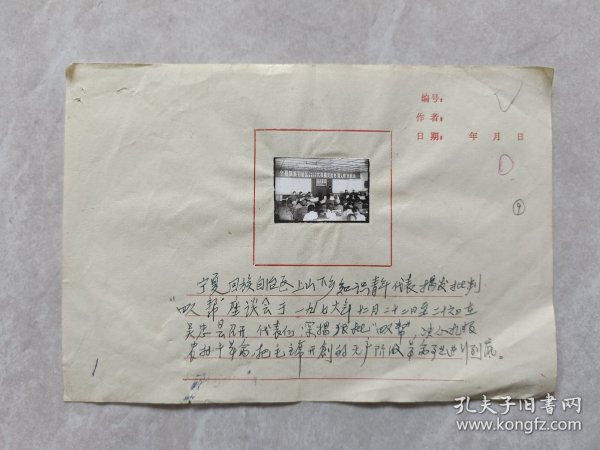 编号：
作者：
日期： 年 月 日
9
宁夏回族自治区上山下乡知识青年代表揭发批判
"四人帮"座谈会于一九七六年十一月二十二日至二十六日在
吴忠县召开 代表们深揭狠批"四人帮" 决心
革命 把毛主席开创的无产阶级革命事业进行到底。
1
孔夫子旧书网
www.kongfz.com